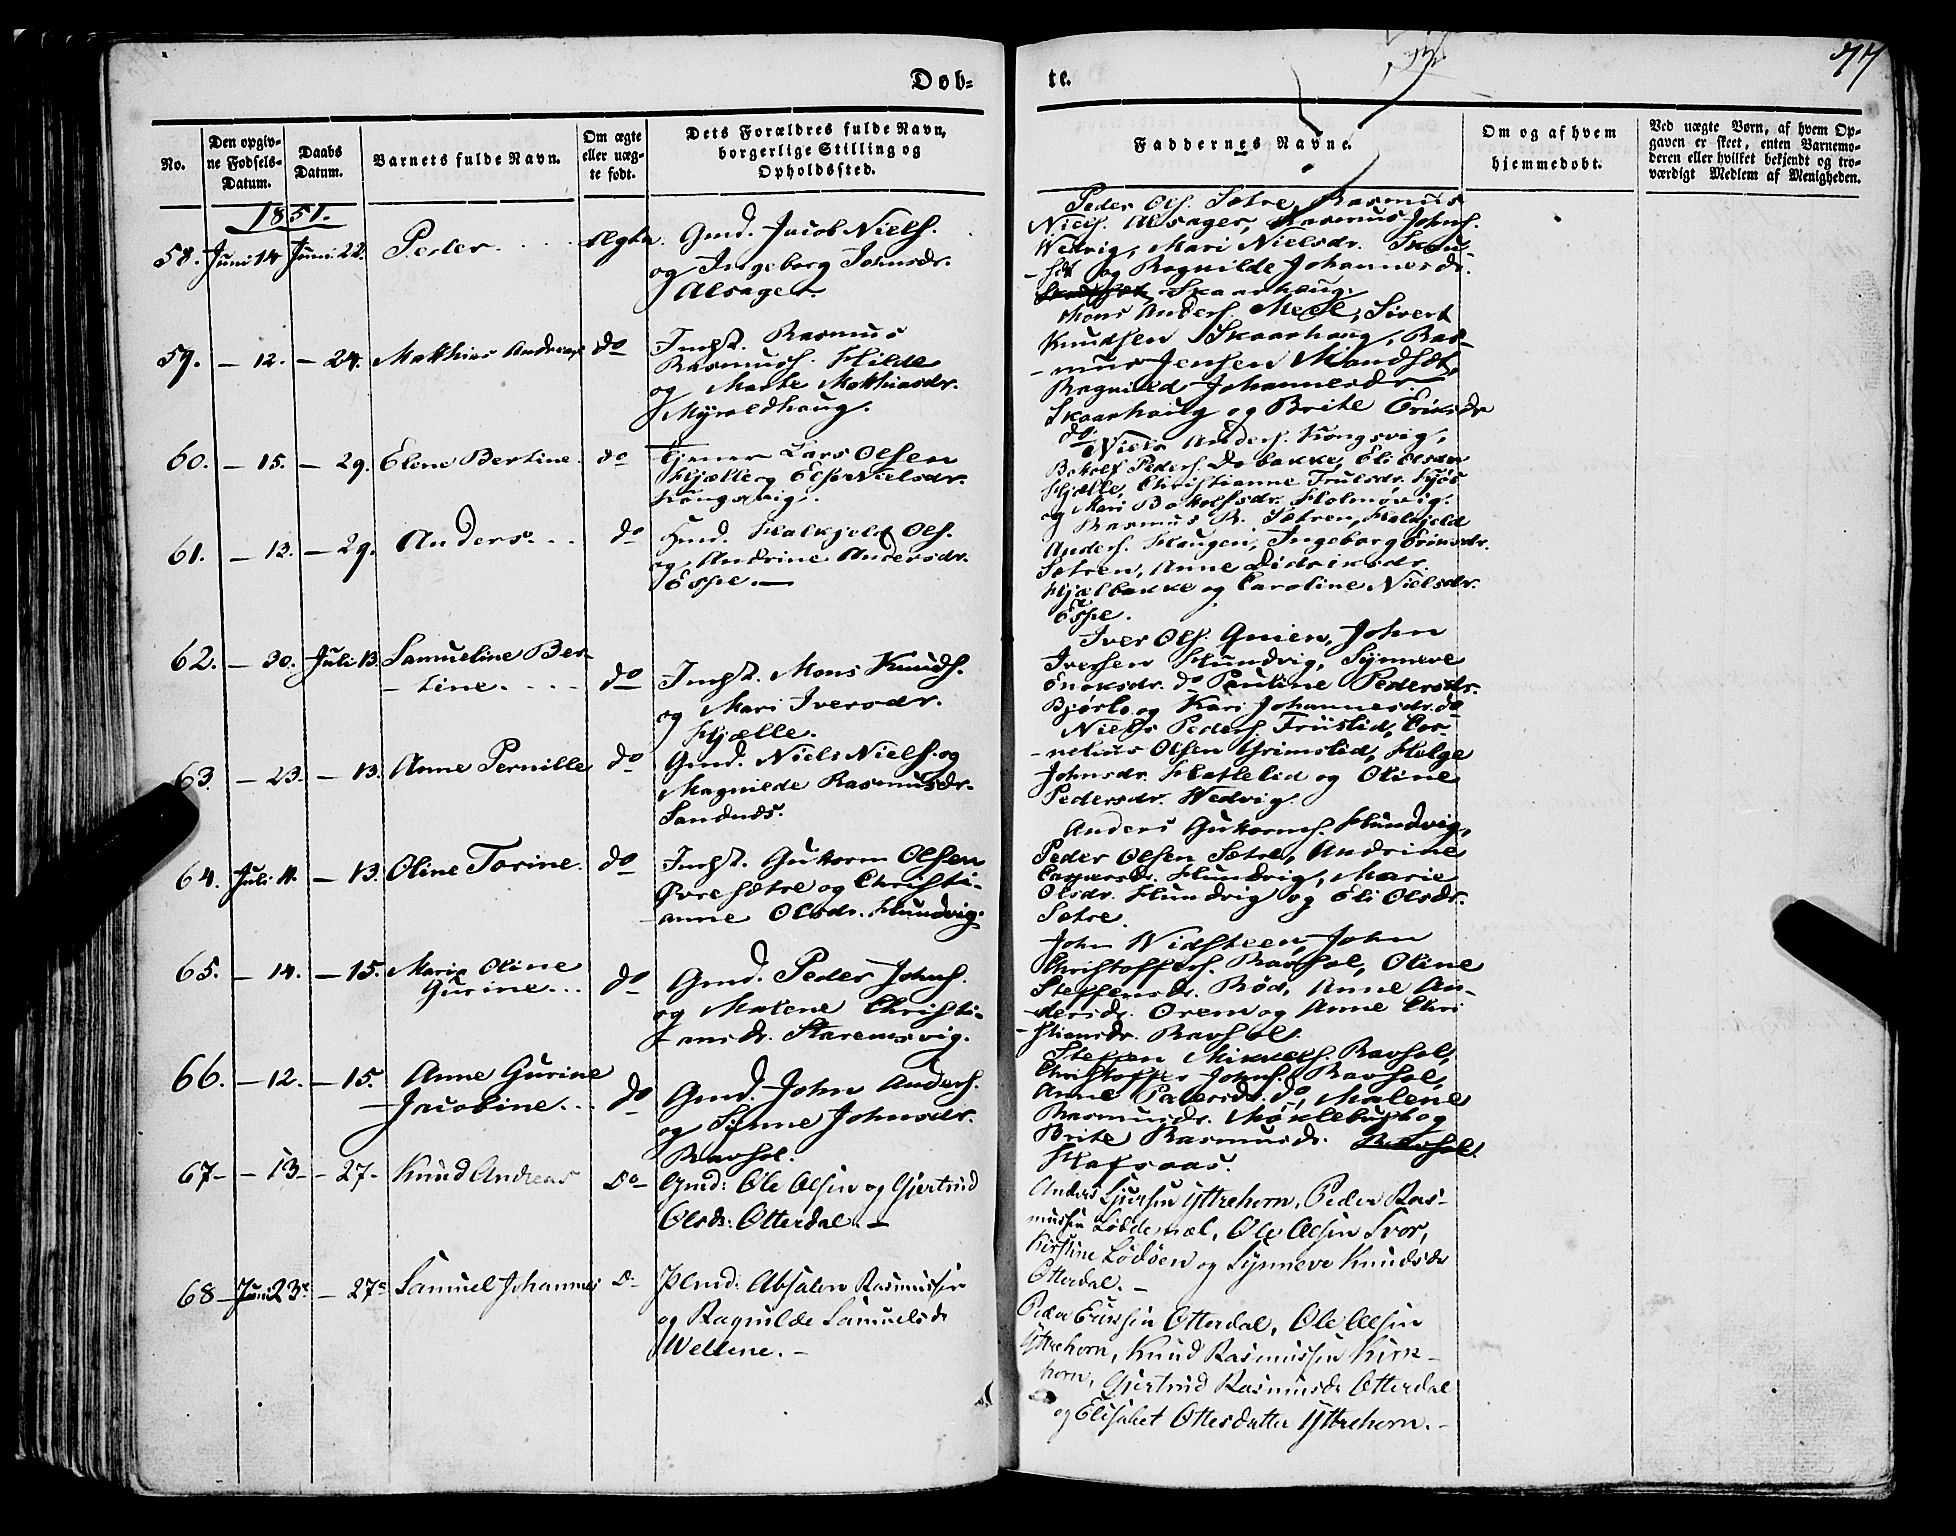 77
Døb-
te.
No.
Den opgiv-
ne Fødsels-
Datum.
Daabs
Datum.
Barnets fulde Navn.
Om ægte
eller uæg-
te født.
Dets Forældres fulde Navn,
borgerlige Stilling og
Opholdssted.
Faddernes Navne.
Om og af hvem
hjemmedøbt.
Ved uægte Børn, af hvem Op-
gaven er skeet, enten Barnemo-
deren eller hvilket bekjendt og tro-
værdigt Medlem af Menigheden.
1851.
58. Juni 14 Juni 22. Peder. ægte. Gmd. Jacob Niels.
og Ingeborg Johnsdr.
Alsager.
Peder Ols. Sætre, Rasmus
Niels. Alsager, Rasmus Johns.
Wedvig, Mari Nielsdr.
og Ragnilde Johannesdr.
Skaarhaug.
59. - 12. - 24. Matthias Andreas do Inst. Rasmus
Rasmuss. Hilde
og Marte Matthiasdr.
Myroldhaug.
Mons Anders. Meel, Sivert
Knudsen Skaarhaug, Ras-
mus Jensen
Ragnild Johannesdr
Skaarhaug og Brite Eriksdr
do.
60. - 15. - 29. Elene Bertine. do Lars Olsen
Hjælle og Else Nielsdr.
Kongsvig.
Niels Anders. Kongsvig,
Botolf Peders. Eli Olsdr
Hjælle, Christianne Trulsdr.
og Mari Botolfsdr. Holmøvig.
61. - 13. - 29. Anders. do Halkjeld Ols.
og Andrine Andersdr.
Espe.
Rasmus R. Sætren, Halkjeld
Anders. Haugen, Ingeborg Eriksdr.
Sætren, Anne Didriksdr.
Hjælbakke og Caroline Nielsdr.
Espe.
62. - 30. Juli 13. Samueline Ber-
tine. do Inst. Mons Knuds.
og Mari Iversdr.
Hjælle.
Iver Ols. John
Iversen Hundvig, Synneve
do Pauline Pedersdr.
og Kari Johannesdr. do
63. - 23. - 13. Anne Pernille do Gmd. Niels Niels. og
Magnilde Rasmusdr.
Sandnæs.
Niels Peders. Friislid, Cor-
nelius Olsen Grimslid, Helge
Johnsdr. Hatlelid og Oline
Pedersdr. Wedvig.
64. Juli - 13. Oline Torine. do Inst. Guttorm Olsen
Øvre Sætre og Christi-
anne Olsdr. Hundvig.
Anders Guttorms. Hundvig,
Peder Olsen Sætre, Andrine
Hundvig, Marie
Olsdr. Hundvig og Eli Olsdr.
Sætre.
65. - 14. - 15. Marie Oline
Gurine. do Gmd. Peder Johns.
og Malene Christi-
ansdr. Starensvig.
John Widsteen, John
Christoffers. Ravhol, Oline
Steffensdr. Rød, Anne An-
dersdr. Orem og Anne Chri
stiansdr. Ravhol.
66. - 12. - 15. Anne Gurine
Jacobine. do Gmd. John Anders.
og Synne Johnsdr.
Ravhol.
Steffen Mikkels. Ravhol,
Christoffer Johns. Ravhol,
Anne do, Malene
Rasmusdr. Møklebust og
Brite Rasmusdr. Ravhol.
Hafsaas.
67 - 13 - 27 - Knud Andreas Do Gmd: Ole Olsen og Gjertrud
Olsdr: Otterdal. -
Anders Sjursen Yttrehorn, Peder Ras-
mussen Løddemæl, Ole Olsen Svor,
Kirstine Lødøen og Synneve Knudsdr
Otterdal. -
68 - Juni 23 - 27 Samuel Johannes D. Absalon Rasmussen
og Ragnilde Samuelsdr
Wellene. -
Peder Ericksen Otterdal, Ole Olsen
Yttrehorn, Knud Rasmussen Kirk-
horn, Gjertrud Rasmusdr Otterdal
og Elisabet Ottesdatter Yttrehorn. -